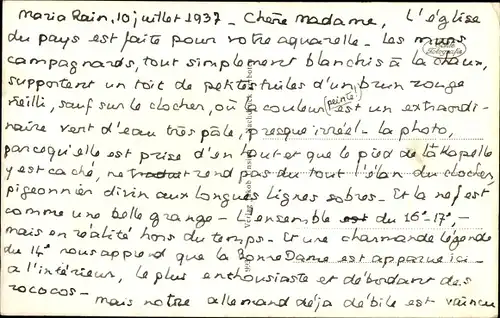 Maria Rain, 10 juillet 1937 - Chère Madame, L'église
du pays est faite pour votre aquarelle - Les murs
campagnards, tout simplement blanchis à la chaux,
supportent un toit de petites tuiles d'un brun rouge
vieilli, sauf sur le clocher, où la couleur (peinte) est un extraordi-
naire vert d'eau très pâle, presque irréel - la photo,
parcequ'elle est prise d'en haut et que le pied de la Kapelle
y est caché, ne traduit rend pas du tout l'élan du clocher,
pigeonnier divin aux longues lignes sobres - Et la nef est
comme une belle grange - L'ensemble est du 16e-17e -
mais en réalité hors du temps - Et une charmante légende
du 14e nous apprend que la Bonne Dame est apparue ici -
à l'intérieur, le plus enthousiaste et débordant des
rococos - mais notre allemand déjà débile est vaincu